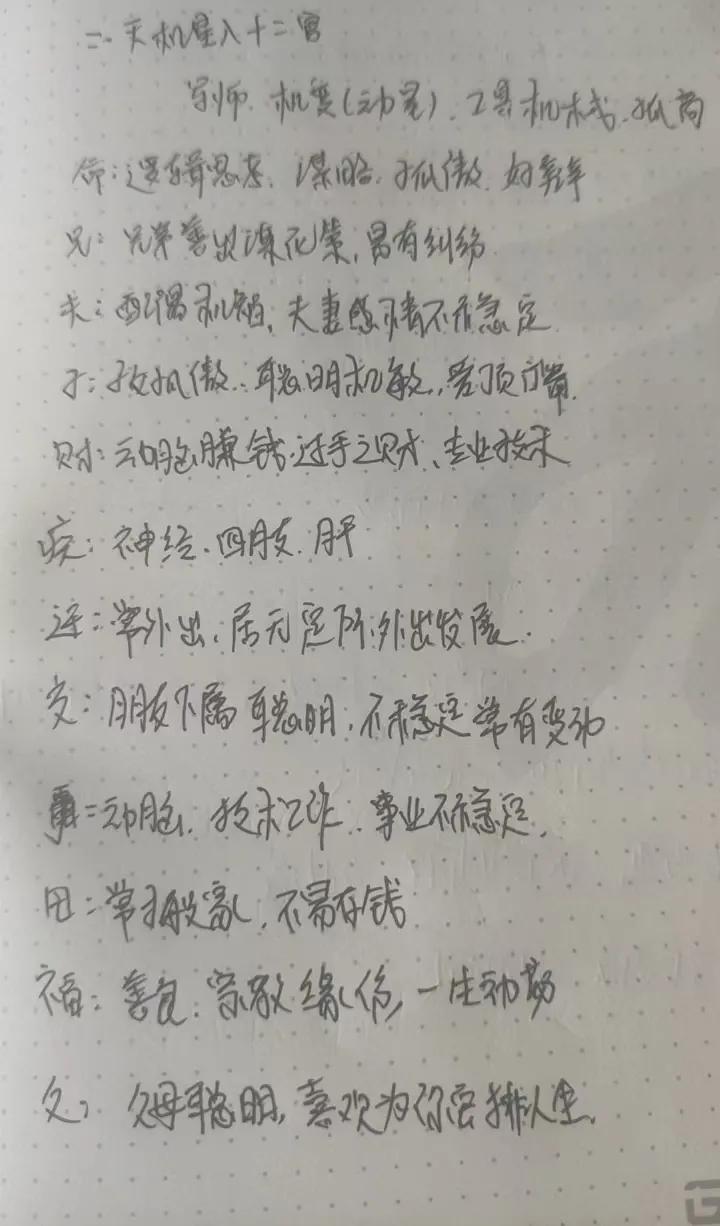 二. 天机星入十二宫
军师. 机变(动星). 工具机械. 孤高
命: 逻辑思考. 谋略. 孤傲. 好辩
兄: 兄弟善出谋花策, 易有纠纷
夫: 配偶机智, 夫妻感情不稳定
子: 子女孤傲. 聪明机敏. 爱顶嘴.
财: 动脑赚钱. 过手之财、专业技术
疾: 神经. 四肢. 肝
迁: 常外出. 居无定所. 外出发展.
交: 朋友下属聪明. 不稳定常有变动
事: 动脑. 技术工作. 事业不稳定.
田: 常搬家. 不易存钱
福: 善良. 宗教缘份, 一生勤
父: 父母聪明, 喜欢为你安排人生.
G